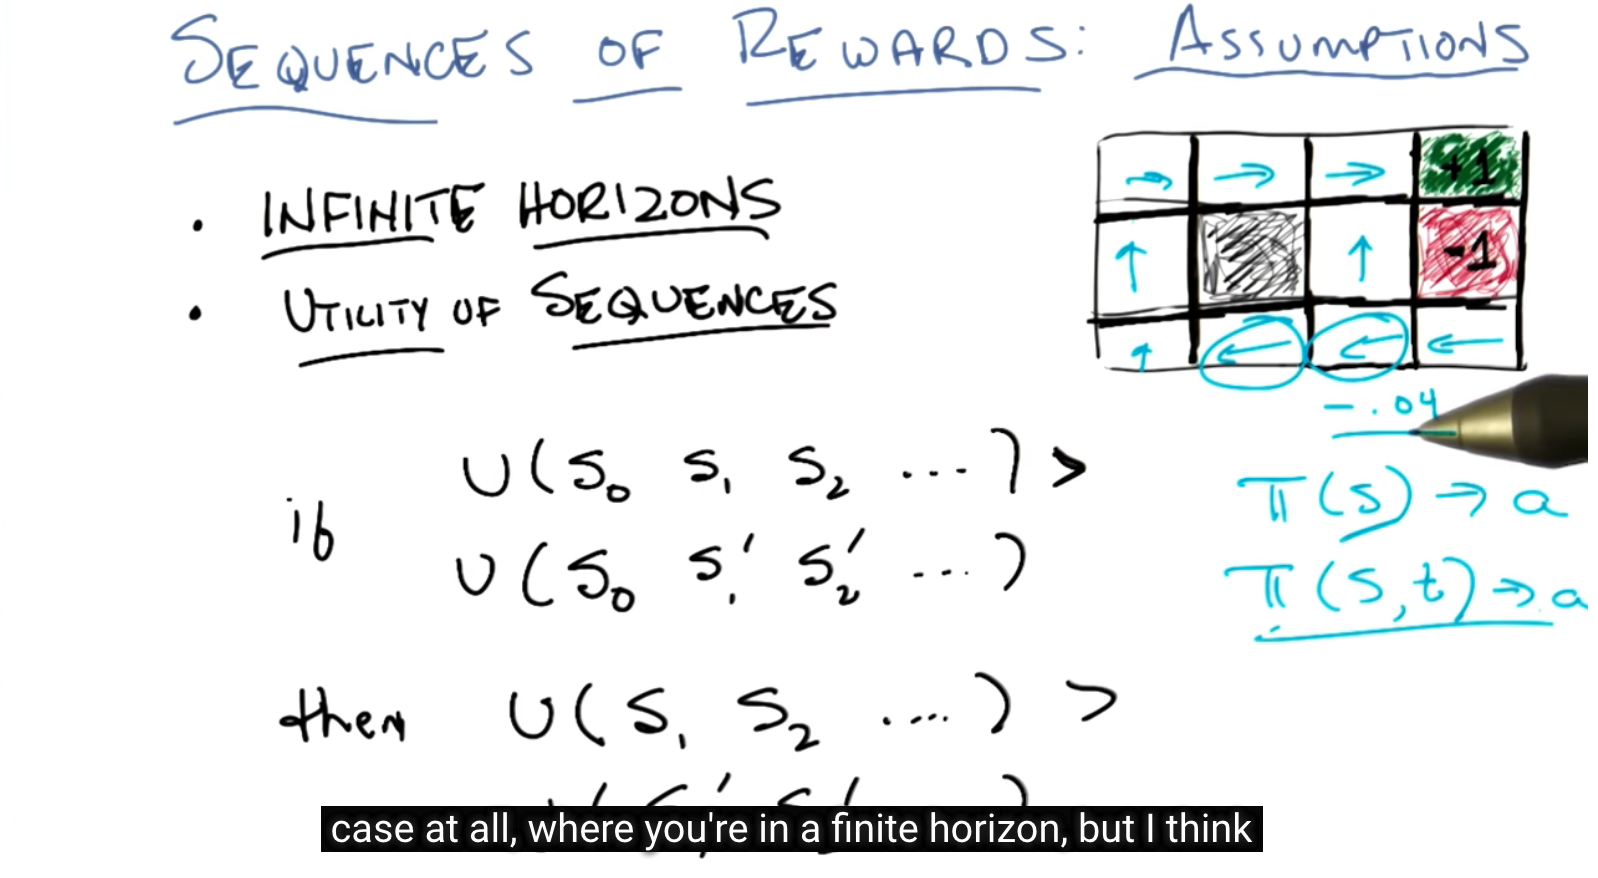 SEQUENCES OF REWARDS: ASSUMPTIONS
+1
• INFINITE HORIZONS
-1
• UTILITY OF SEQUENCES
-.04
U(S₀ S₁ S₂ ....) >
π(s) → a
if
U(S₀ S₁' S₂' ...)
π(s,t) → a
then U(S₁ S₂ ....) >
case at all, where you're in a finite horizon, but I think